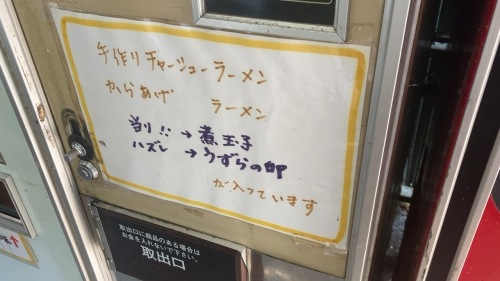 手作りチャーシューラーメン
からあげ ラーメン
当り!! → 煮玉子
ハズレ → うずらの卵
が入っています
取出口に商品のある場合は
お金を入れないで下さい。
取出口